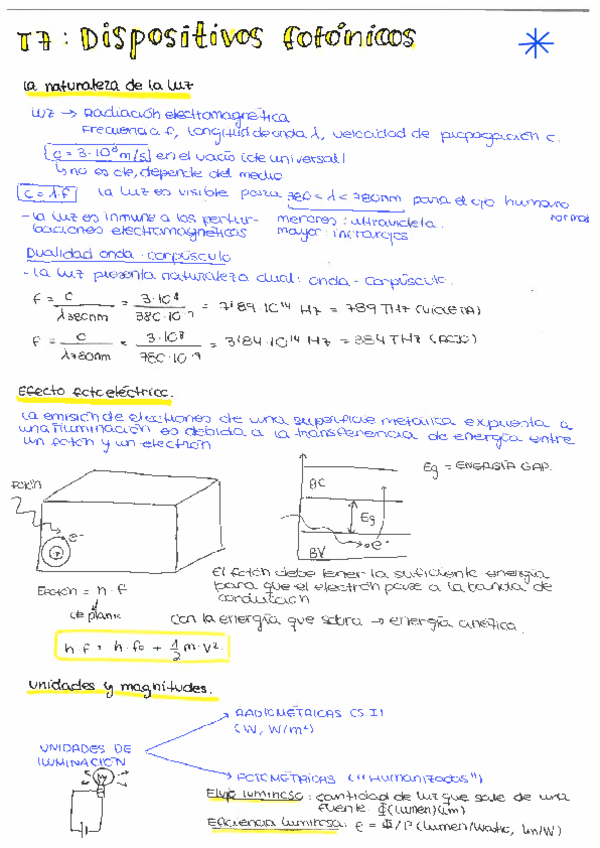 T7: Dispositivos fotónicos
La naturaleza de la luz
luz → Radiación electromagnética
Frecuencia f, longitud de onda λ, velocidad de propagación c.
c = 3·10⁸ m/s en el vacío (cte universal)
↳ no es cte, depende del medio
c = λ·f la luz es visible para 380 < λ < 780nm para el ojo humano normal
- la luz es inmune a las perturbaciones electromagnéticas
menores: ultravioleta.
mayor: infrarrojos
Dualidad onda-corpúsculo
- la luz presenta naturaleza dual: onda-corpúsculo.
f = c / λ380nm = 3·10⁸ / 380·10⁻⁹ = 7'89·10¹⁴ Hz = 789 THz (VIOLETA)
f = c / λ780nm = 3·10⁸ / 780·10⁻⁹ = 3'84·10¹⁴ Hz = 384 THz (ROJO)
Efecto fotoeléctrico.
la emisión de electrones de una superficie metálica expuesta a
una iluminación es debida a la transferencia de energía entre
un fotón y un electrón
Eg = ENERGÍA GAP.
fotón
e-
BC
Eg
e-
BV
El fotón debe tener la suficiente energía
para que el electrón pase a la banda de
conducción
Efotón = h·f
cte plank
con la energía que sobra → energía cinética.
h·f = h·f₀ + 1/2 m·v²
Unidades y magnitudes.
RADIOMÉTRICAS (S.I)
(W, W/m²)
UNIDADES DE
ILUMINACIÓN
FOTOMÉTRICAS ("Humanizadas")
Flujo luminoso: cantidad de luz que sale de una
fuente. Φ(lumen)(lm)
Eficiencia luminosa: e = Φ/P (lumen/watio, lm/W)